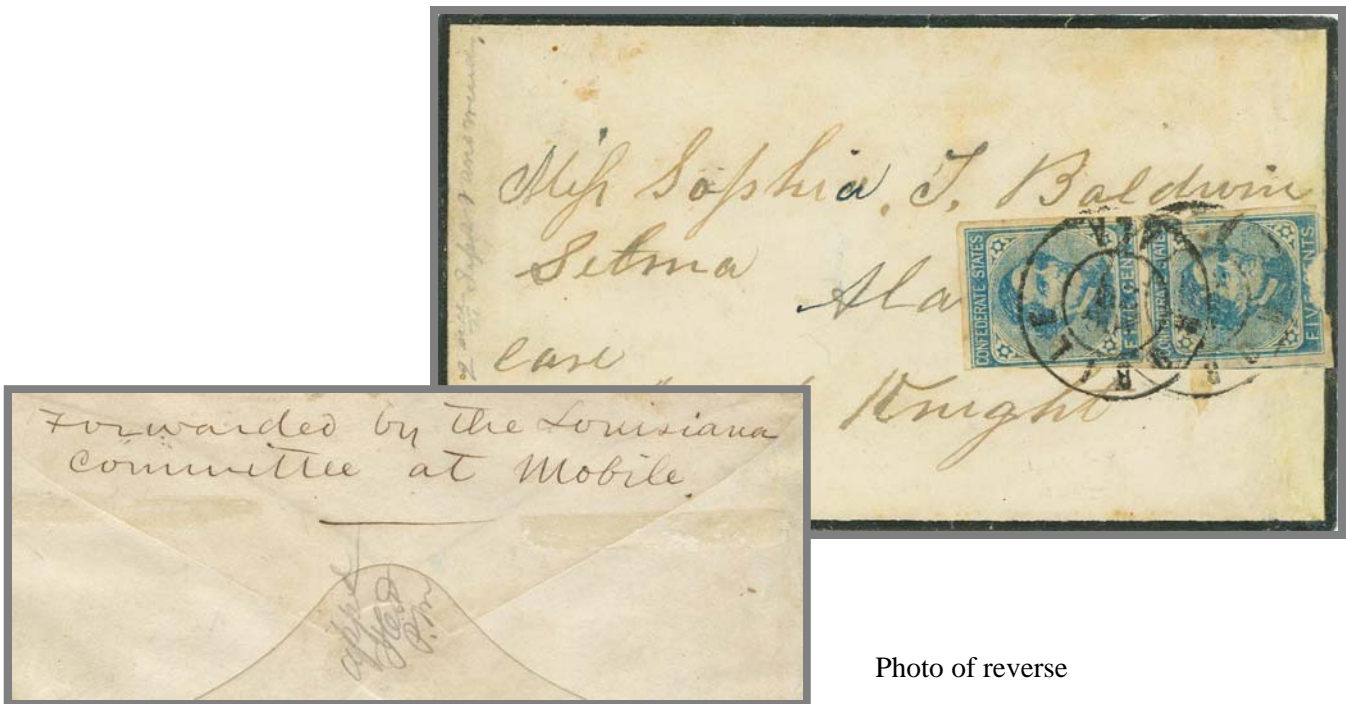 Miss Sophia. T. Baldwin
Selma
Ala
care
Knight
CONFEDERATE STATES
FIVE CENTS
CONFEDERATE STATES
FIVE CENTS
MOBILE
ALA
Forwarded by the Louisiana
Committee at Mobile.
Photo of reverse